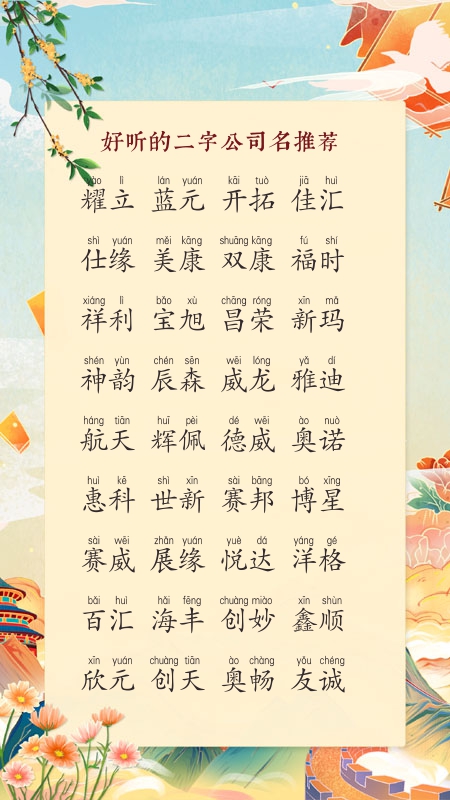 好听的二字公司名推荐
yào lì lán yuán kāi tuò jiā huì
耀立 蓝元 开拓 佳汇
shì yuán měi kāng shuāng kāng fú shí
仕缘 美康 双康 福时
xiáng lì bǎo xù chāng róng xīn mǎ
祥利 宝旭 昌荣 新玛
shén yùn chén sēn wēi lóng yǎ dí
神韵 辰森 威龙 雅迪
háng tiān huī pèi dé wēi ào nuò
航天 辉佩 德威 奥诺
huì kē shì xīn sài bāng bó xīng
惠科 世新 赛邦 博星
sài wēi zhǎn yuán yuè dá yáng gé
赛威 展缘 悦达 洋格
bǎi huì hǎi fēng chuàng miào xīn shùn
百汇 海丰 创妙 鑫顺
xīn yuán chuàng tiān ào chàng yǒu chéng
欣元 创天 奥畅 友诚